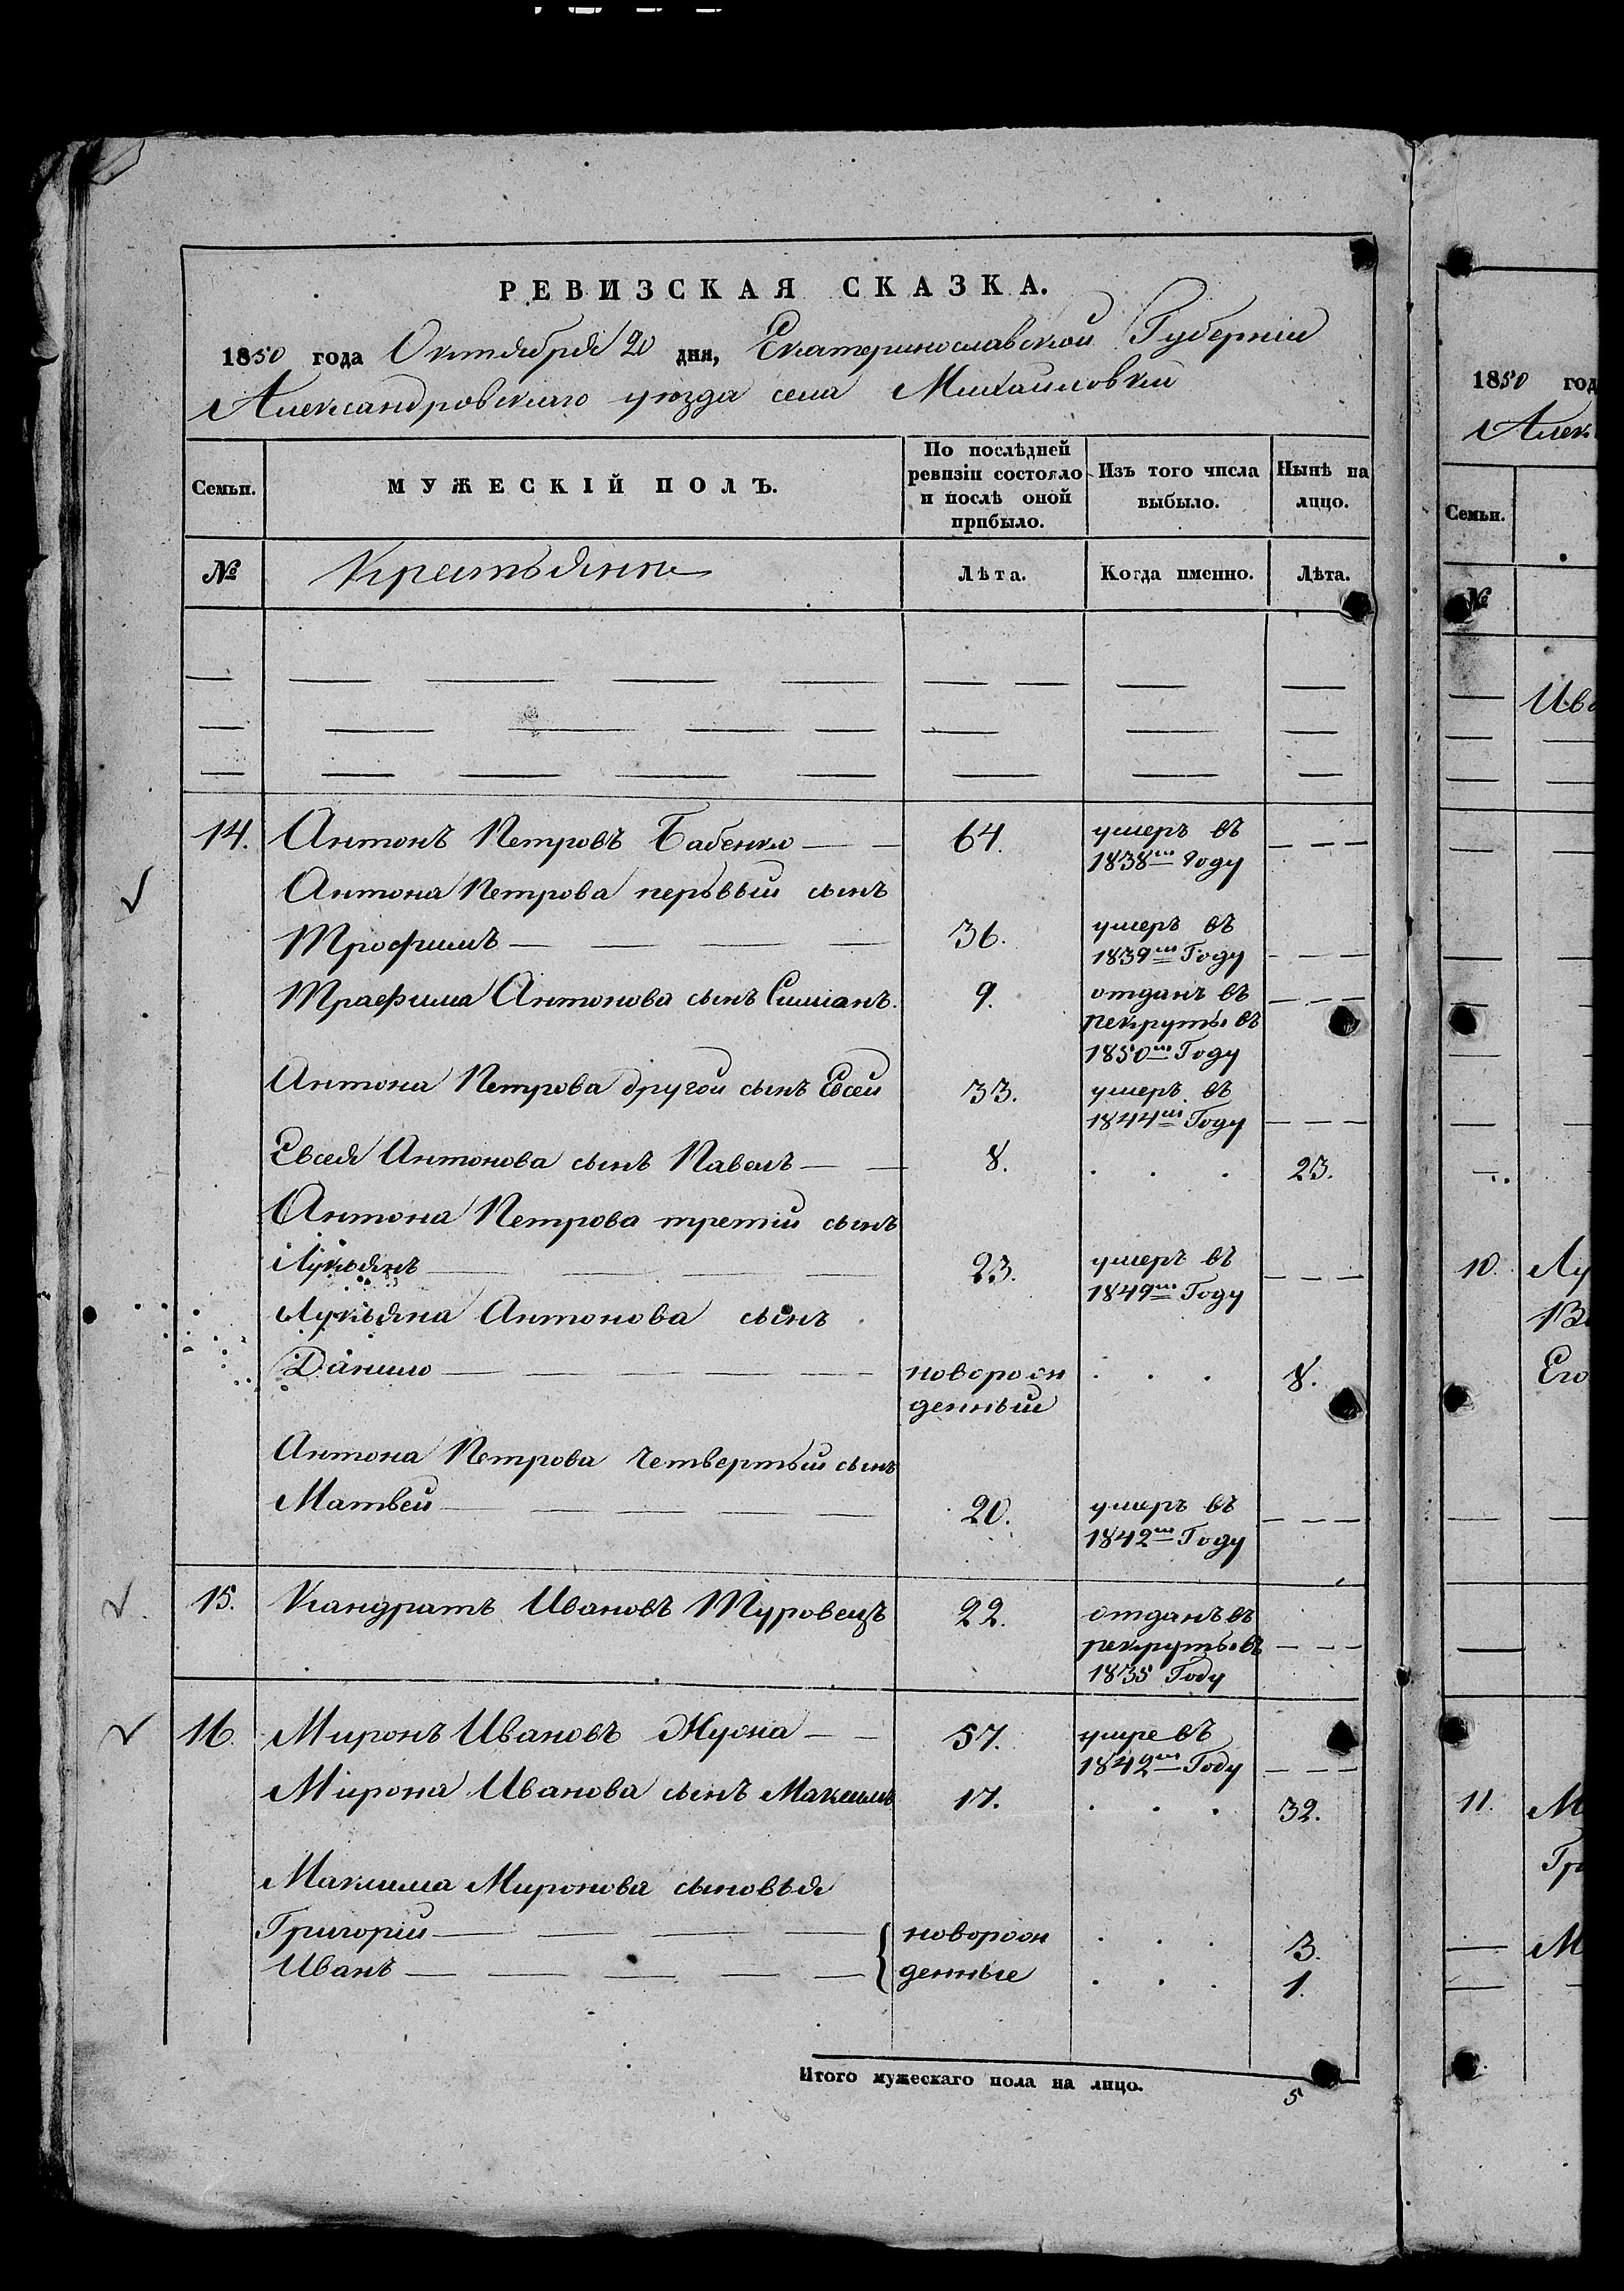 РЕВИЗСКАЯ СКАЗКА.
1850 года Октября 20 дня, Екатеринославской Губернiи
Александровскаго уѣзда села Михаиловки
Семьи.
МУЖЕСКIЙ ПОЛЪ.
По послѣдней ревизiи состояло и послѣ оной прибыло.
Изъ того числа выбыло.
Нынѣ на лицо.
№ Крестьянѣ Лѣта. Когда именно. Лѣта.
14. Антонъ Петровъ Бабенко 64. умеръ въ 1838м Году
Антона Петрова перьвый сынъ
Трофимъ 36. умеръ въ 1839м Году
Трафима Антонова сынъ Симианъ. 9. отданъ въ рекруты въ 1850м Году
Антона Петрова другои сынъ Евсеи 33. умеръ въ 1844м Году
Евсея Антонова сынъ Павелъ 8. . . . 23.
Антона Петрова третiи сынъ
Лукьянъ 23. умеръ въ 1849м Году
Лукьяна Антонова сынъ
Данило новорожденный . . . 8.
Антона Петрова четвертыи сынъ
Матвеи 20. умеръ въ 1842м Году
15. Кандратъ Ивановъ Туровецъ 22. отданъ въ рекруты въ 1835 Году
16. Миронъ Ивановъ 57. умре въ 1842м Году
Мирона Иванова сынъ Максимъ 17. . . . 32.
Максима Миронова сыновья
Григорiи новорож . . . 3.
Иванъ денные . . . 1.
Итого мужескаго пола на лицо. 5
1850 год
Алек
Семьи.
№
Ива
10. Лу
Его
11. М
М